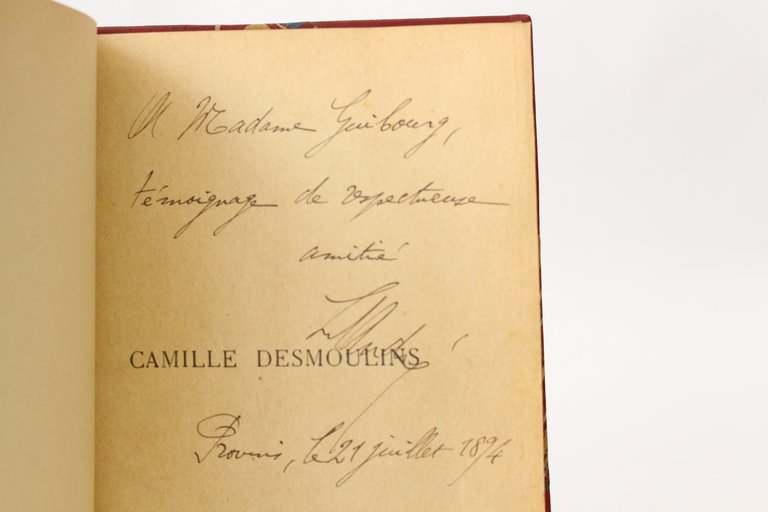 A Madame Guibourg,
témoignage de respectueuse
amitié
CAMILLE DESMOULINS
Provins, le 21 juillet 1894